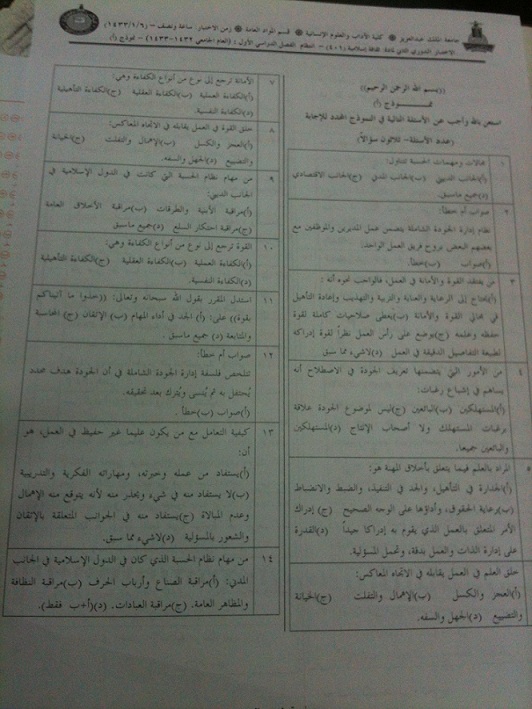 جامعة الملك عبدالعزيز * كلية الآداب والعلوم الإنسانية * قسم المواد العامة * زمن الاختبار: ساعة ونصف - (١٤٣٣/١/٦)
الاختبار الدوري الثاني لمادة: ثقافة إسلامية (٤٠١) - انتظام الفصل الدراسي الأول: (العام الجامعي ١٤٣٢-١٤٣٣) - نموذج (أ)
((بسم الله الرحمن الرحيم))
نمـــوذج (أ)
استعن بالله وأجب عن الأسئلة التالية في النموذج المحدد للإجابة
(عدد الأسئلة- ثلاثون سؤالاً)
١ مجالات ومهمات الحسبة تتناول:
(أ)الجانب الديني (ب)الجانب المدني (ج)الجانب الاقتصادي
(د)جميع ماسبق.
٢ صواب أم خطأ:
نظام إدارة الجودة الشاملة يتضمن عمل المديرين والموظفين مع
بعضهم البعض بروح فريق العمل الواحد.
(أ)صواب (ب)خطأ.
٣ من يفتقد القوة والأمانة في العمل، فالواجب نحوه أنه:
(أ)يحتاج إلى الرعاية والعناية والتربية والتهذيب وإعادة التأهيل
في مجالي القوة والأمانة (ب)يعطى صلاحيات كاملة لقوة
حفظه وعلمه (ج)يوضع على رأس العمل نظراً لقوة إدراكه
لطبيعة التفاصيل الدقيقة في العمل (د)لاشيء مما سبق
٤ من الأمور التي يتضمنها تعريف الجودة في الاصطلاح أنه
يساهم في إشباع رغبات:
(أ)المستهلكين (ب)البائعين (ج)ليس لموضوع الجودة علاقة
برغبات المستهلك ولا أصحاب الإنتاج (د)المستهلكين
والبائعين جميعها.
٥ المراد بالعلم فيما يتعلق بأخلاق المهنة هو:
(أ)الجدارة في التأهيل، والجد في التنفيذ، والضبط والانضباط
(ب)رعاية الحقوق، وأداؤها على الوجه الصحيح (ج) إدراك
الأمر المتعلق بالعمل الذي يقوم به إدراكا جيداً (د)القدرة
على إدارة الذات والعمل بدقة، وتحمل المسولية.
خلق العلم في العمل يقابله في الاتجاه المعاكس:
(أ)العجز والكسل (ب)الإهمال والتفلت (ج)الخيانة
والتضييع (د)الجهل والسفه.
٧ الأمانة ترجع إلى نوع من أنواع الكفاءة وهي:
(أ)الكفاءة العملية (ب)الكفاءة العقلية (ج)الكفاءة التأهيلية
(د)الكفاءة النفسية.
٨ خلق القوة في العمل يقابله في الاتجاه المعاكس:
(أ)العجز والكسل (ب)الإهمال والتفلت (ج)الخيانة
والتضييع (د)الجهل والسفه.
٩ من مهام نظام الحسبة التي كانت في الدول الإسلامية في
الجانب الديني:
(أ)مراقبة الأبنية والطرقات (ب)مراقبة الأخلاق العامة
(ج)مراقبة احتكار السلع (د)جميع ماسبق
١٠ القوة ترجع إلى نوع من أنواع الكفاءة وهي:
(أ)الكفاءة العملية (ب)الكفاءة العقلية (ج)الكفاءة التأهيلية
(د)الكفاءة النفسية.
١١ استدل المقرر بقول الله سبحانه وتعالى: ((خذوا ما آتيناكم
بقوة)) على: (أ) الجد في أداء المهام (ب) الإتقان (ج) المحاسبة
والمتابعة (د) جميع ماسبق.
١٢ صواب أم خطأ:
تتلخص فلسفة إدارة الجودة الشاملة في أن الجودة هدف محدد
يُحتفل به ثم يُنسى ويُترك بعد تحقيقه.
(أ)صواب (ب)خطأ.
١٣ كيفية التعامل مع من يكون عليما غير حفيظ في العمل، هو
أن:
(أ)يستفاد من عمله وخبرته، ومهاراته الفكرية والتدريبية
(ب)لا يستفاد منه في شيء ويحذر منه لأنه يتوقع منه الإهمال
وعدم المبالاة (ج)يستفاد منه في الجوانب المتعلقة بالإتقان
والشعور بالمسؤلية (د)لاشيء مما سبق.
١٤ من مهام نظام الحسبة الذي كان في الدول الإسلامية في الجانب
المدني: (أ)مراقبة الصناع وأرباب الحرف (ب)مراقبة النظافة
والمظاهر العامة. (ج)مراقبة العبادات. (د)(أ+ب فقط).